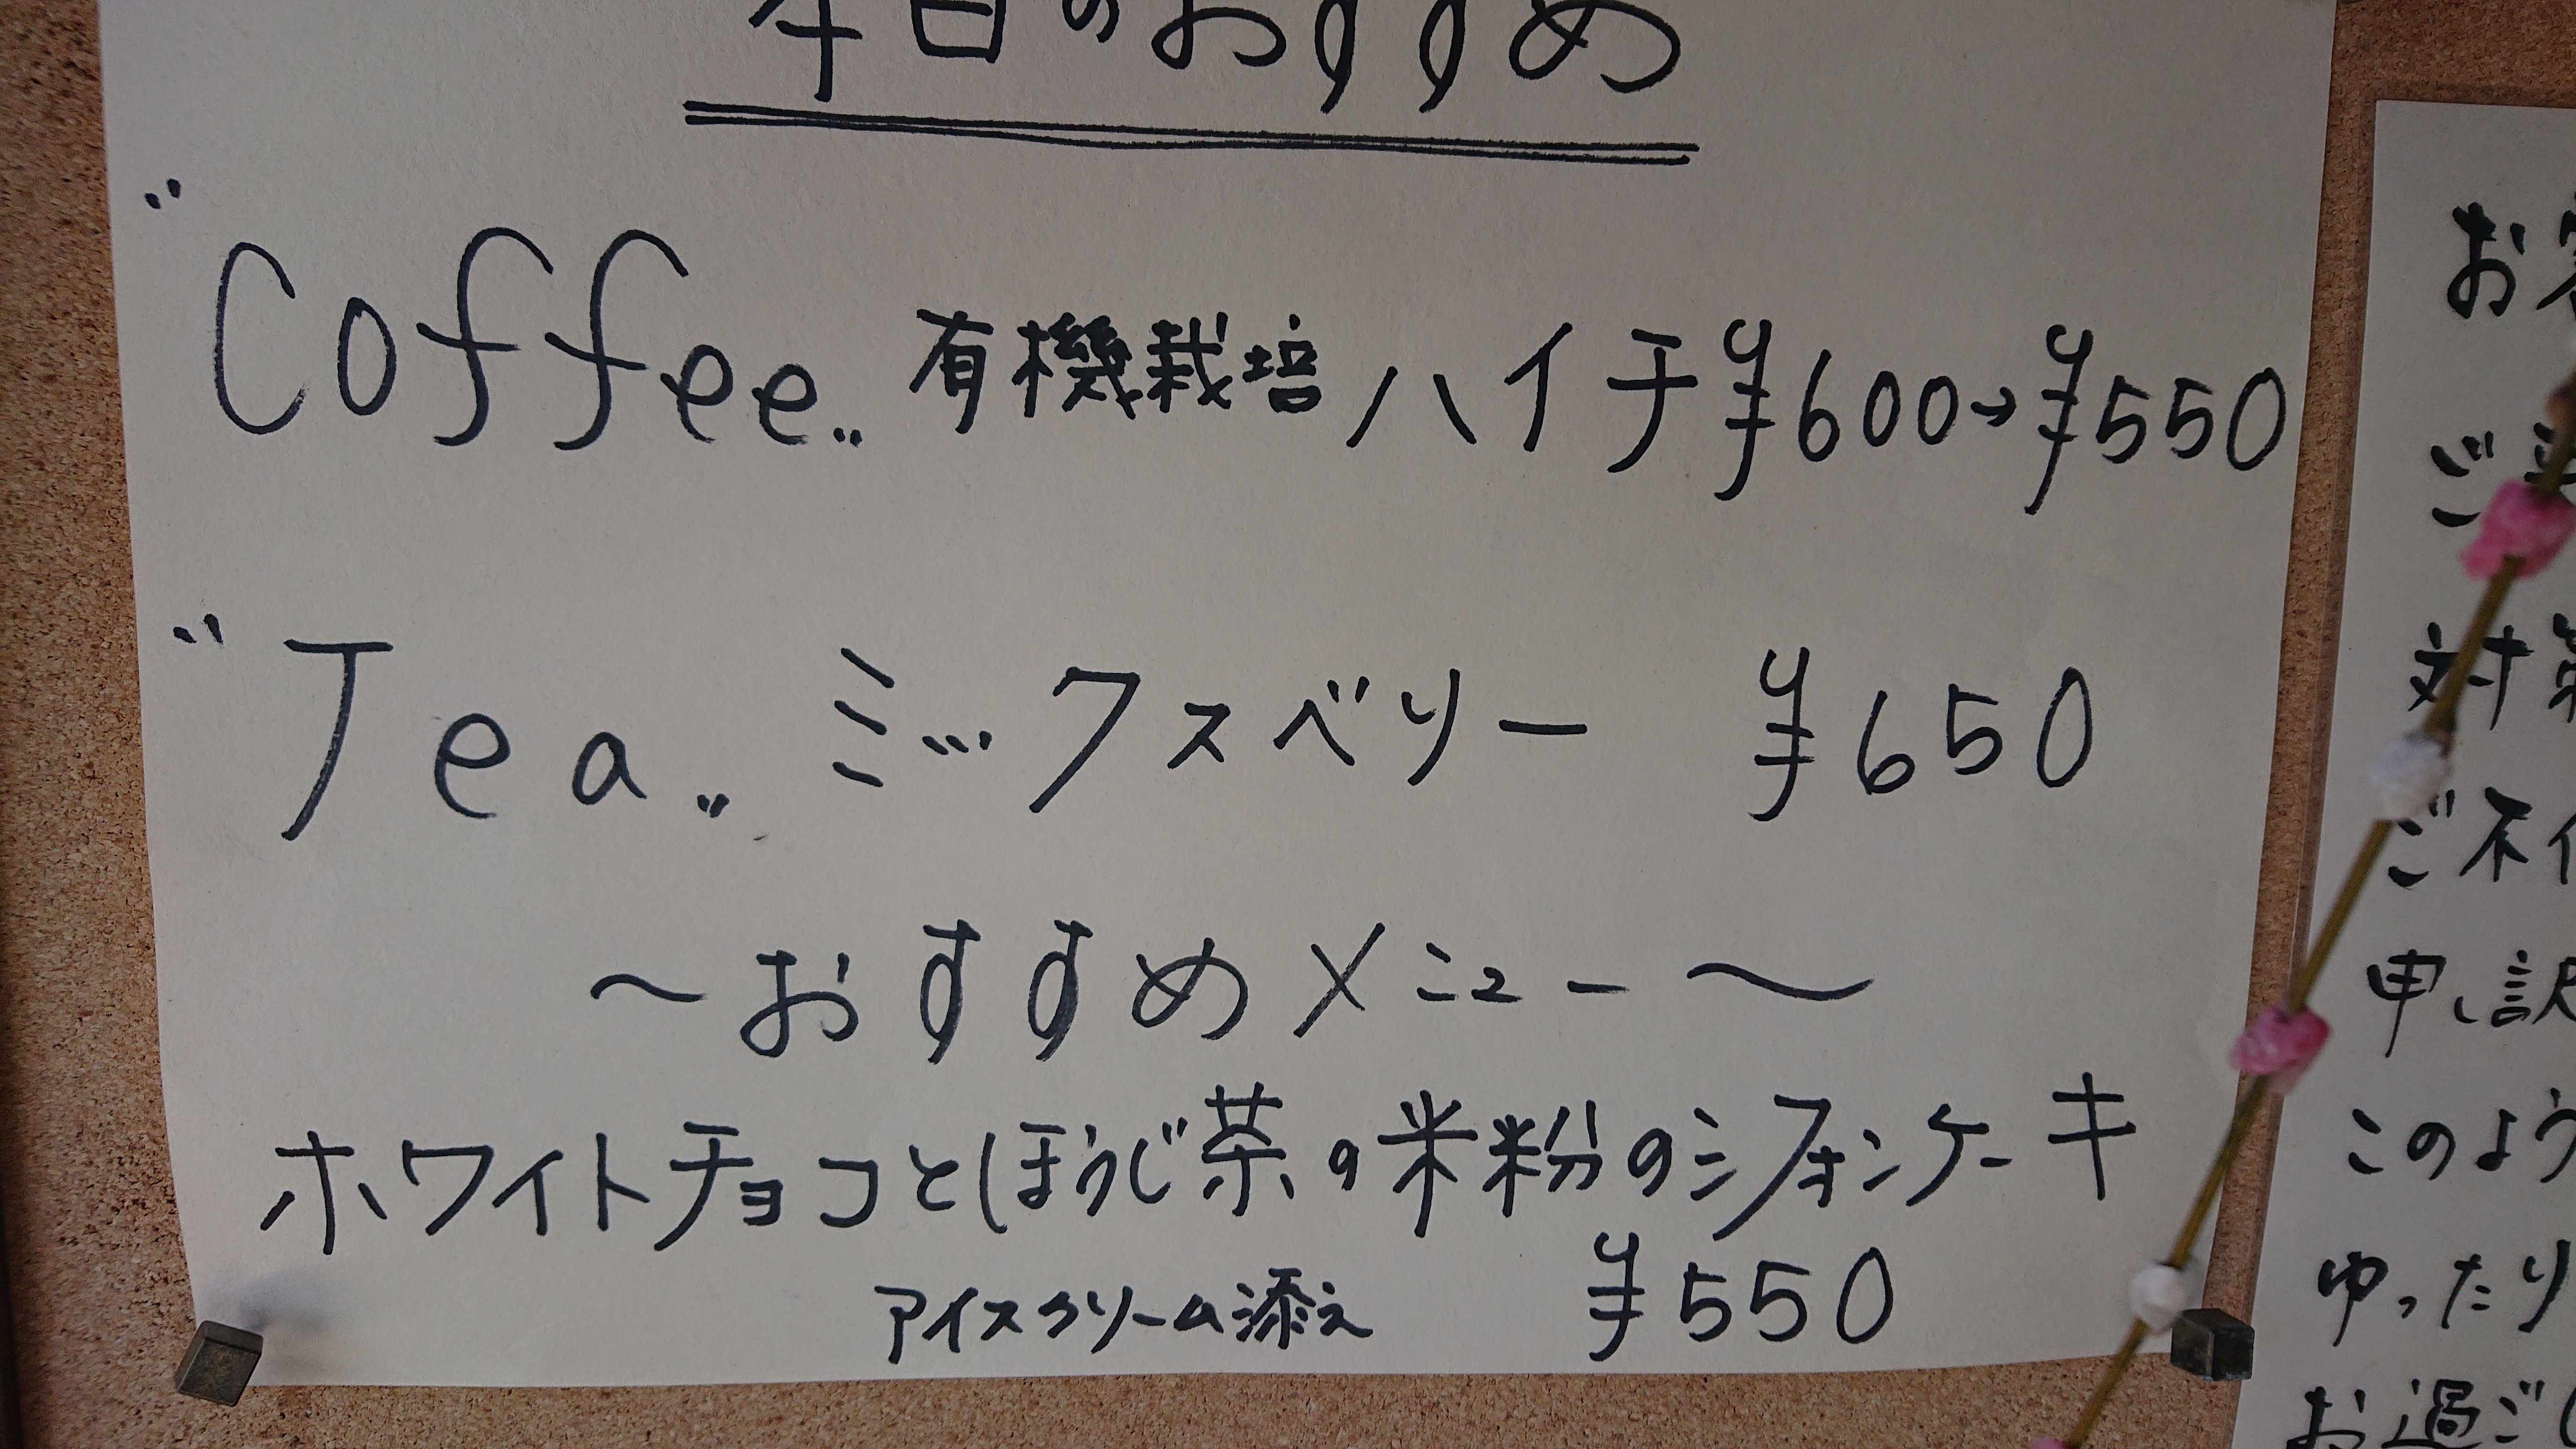 本日のおすすめ
"Coffee" 有機栽培 ハイチ ¥600→¥550
"Tea" ミックスベリー ¥650
〜おすすめメニュー〜
ホワイトチョコとほうじ茶の米粉のシフォンケーキ
アイスクリーム添え ¥550
お
ご
対策
ご不
申し訳
このよう
ゆったり
お過ご